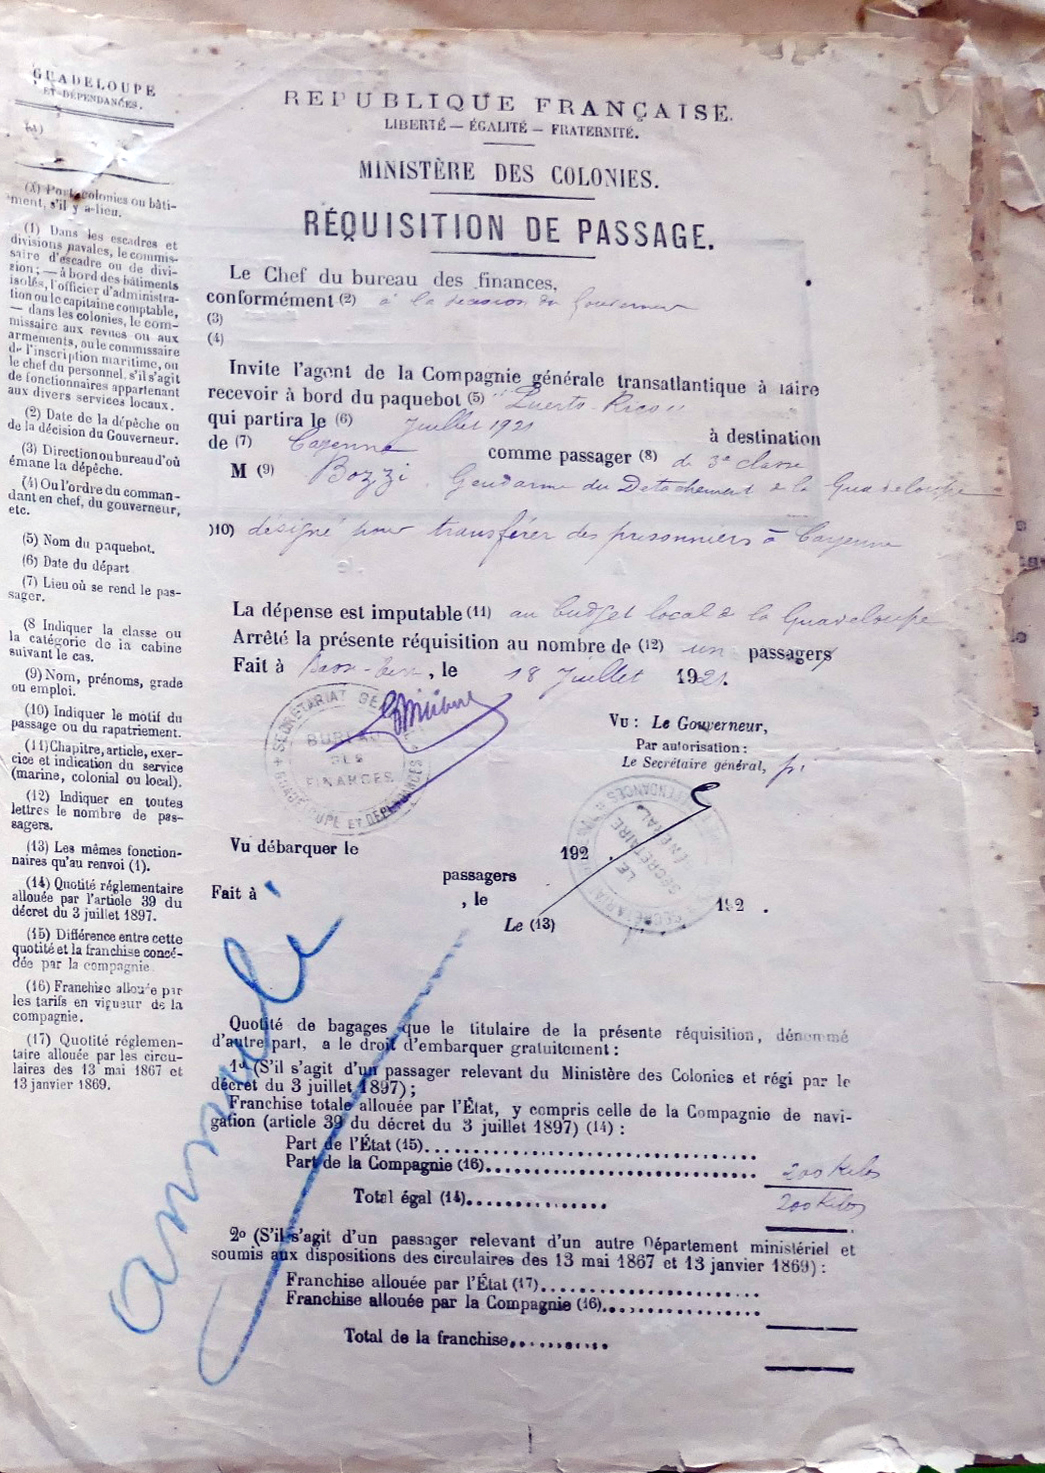 GUADELOUPE
ET DÉPENDANCES.
(X) Port, colonies ou bâti-
ment, s'il y a lieu.
(1) Dans les escadres et
divisions navales, le commis-
saire d'escadre ou de divi-
sion; — à bord des bâtiments
isolés, l'officier d'administra-
tion ou le capitaine comptable,
— dans les colonies, le com-
missaire aux revues ou aux
armements, ou le commissaire
de l'inscription maritime, ou
le chef du personnel, s'il s'agit
de fonctionnaires appartenant
aux divers services locaux.
(2) Date de la dépêche ou
de la décision du Gouverneur.
(3) Direction ou bureau d'où
émane la dépêche.
(4) Ou l'ordre du comman-
dant en chef, du gouverneur,
etc.
(5) Nom du paquebot.
(6) Date du départ
(7) Lieu où se rend le pas-
sager.
(8 Indiquer la classe ou
la catégorie de la cabine
suivant le cas.
(9) Nom, prénoms, grade
ou emploi.
(10) Indiquer le motif du
passage ou du rapatriement.
(11) Chapitre, article, exer-
cice et indication du service
(marine, colonial ou local).
(12) Indiquer en toutes
lettres le nombre de pas-
sagers.
(13) Les mêmes fonction-
naires qu'au renvoi (1).
(14) Quotité réglementaire
allouée par l'article 39 du
décret du 3 juillet 1897.
(15) Différence entre cette
quotité et la franchise concé-
dée par la compagnie
(16) Franchise allouée par
les tarifs en vigueur de la
compagnie.
(17) Quotité réglemen-
taire allouée par les circu-
laires des 13 mai 1867 et
13 janvier 1869.
REPUBLIQUE FRANÇAISE.
LIBERTÉ — ÉGALITÉ — FRATERNITÉ.
MINISTÈRE DES COLONIES.
RÉQUISITION DE PASSAGE.
Le Chef du bureau des finances,
conformément (2) à la décision du Gouverneur
(3)
(4)
Invite l'agent de la Compagnie générale transatlantique à faire
recevoir à bord du paquebot (5) "Puerto-Rico"
qui partira le (6) Juillet 1921 à destination
de (7) Cayenne comme passager (8) de 3e classe
M (9) Bozzi, Gendarme du Détachement de la Guadeloupe
)10) désigné pour transférer des prisonniers à Cayenne
La dépense est imputable (11) au budget local de la Guadeloupe
Arrêté la présente réquisition au nombre de (12) un passagers
Fait à Basse-Terre, le 18 Juillet 1921.
SECRÉTARIAT GÉNÉRAL
BUREAU
DES
FINANCES
GUADELOUPE ET DÉPENDANCES
Vu : Le Gouverneur,
Par autorisation :
Le Secrétaire général, p.i
LE
SECRÉTAIRE
GÉNÉRAL
Vu débarquer le 192 .
passagers
Fait à , le 192 .
Le (13)
annulé
Quotité de bagages que le titulaire de la présente réquisition, dénommé
d'autre part, a le droit d'embarquer gratuitement :
1° (S'il s'agit d'un passager relevant du Ministère des Colonies et régi par le
décret du 3 juillet 1897) ;
Franchise totale allouée par l'État, y compris celle de la Compagnie de navi-
gation (article 39 du décret du 3 juillet 1897) (14) :
Part de l'État (15)
Part de la Compagnie (16) 200 kilos
Total égal (14) 200 kilos
2° (S'il s'agit d'un passager relevant d'un autre Département ministériel et
soumis aux dispositions des circulaires des 13 mai 1867 et 13 janvier 1869) :
Franchise allouée par l'État (17)
Franchise allouée par la Compagnie (16)
Total de la franchise